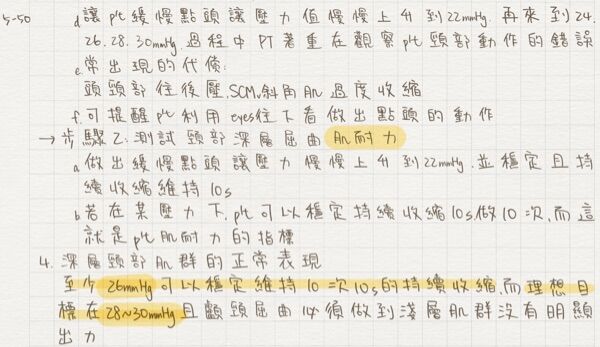 5-50
d 讓 pt 緩慢點頭讓壓力值慢慢上升到22mmHg. 再來到24.
26.28.30mmHg 過程中 PT 著重在觀察 pt 頸部動作的錯誤
e. 常出現的代償:
頭頸部往後壓.SCM.斜角肌過度收縮
f. 可提醒 pt 利用 eyes往下看做出點頭的動作
→ 步驟乙:測試頸部深層屈曲肌耐力
a. 做出緩慢點頭讓壓力慢慢上升到22mmHg.並穩定且持
續收縮維持10s
b. 若在某壓力下, pt 可以穩定持續收縮10s.做10次,而這
就是 pt 肌耐力的指標
4. 深層頸部肌群的正常表現
至少26mmHg可以穩定維持10次10s的持續收縮,而理想目
標在28~30mmHg且顱頸屈曲必須做到淺層肌群沒有明顯
出力